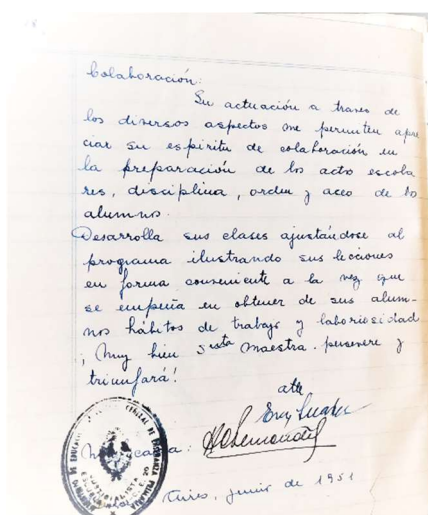 Colaboración:
Su actuación a traves de
los diversos aspectos me permiten apre
ciar su espíritu de colaboración en
la preparación de los acto escola
res, disciplina, orden y aseo de los
alumnos.
Desarrolla sus clases ajustándose al
programa ilustrando sus lecciones
en forma conveniente a la vez que
se empeña en obtener de sus alum-
nos hábitos de trabajo y laboriosidad
¡Muy bien Srta maestra. persevere y
triunfará!
atte
Aires, junio de 1951